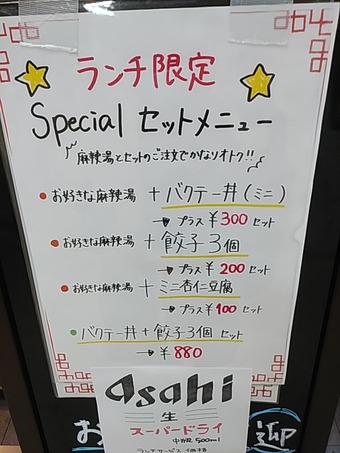 ランチ限定
Special セットメニュー
麻辣湯とセットのご注文でかなりオトク!!
お好きな麻辣湯 + バクテー丼(ミニ)
プラス ¥300 セット
お好きな麻辣湯 + 餃子3個
プラス ¥200 セット
お好きな麻辣湯 + ミニ杏仁豆腐
プラス ¥100 セット
バクテー丼+餃子3個 セット
¥880
asahi
生
スーパードライ
中瓶 500ml
ランチサービス価格
迎